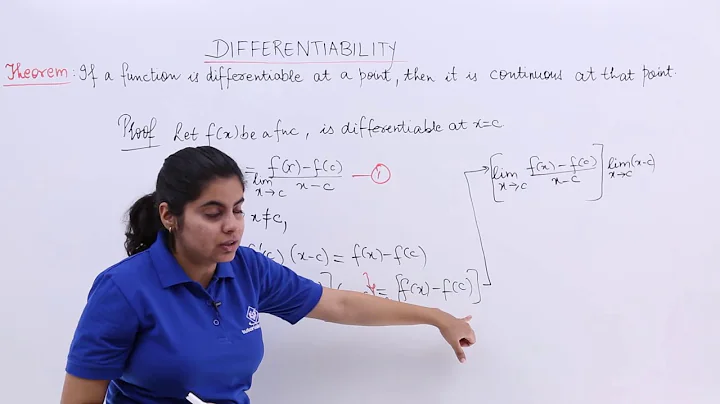 DIFFERENTIABILITY
Theorem: If a function is differentiable at a point, then it is continuous at that point.
Proof Let f(x) be a fnc, is differentiable at x=c
= lim x→c f(x)-f(c) / x-c — 1
x≠c,
(x-c) = f(x)-f(c)
= [f(x)-f(c)]
[lim x→c f(x)-f(c) / x-c] lim x→c (x-c)